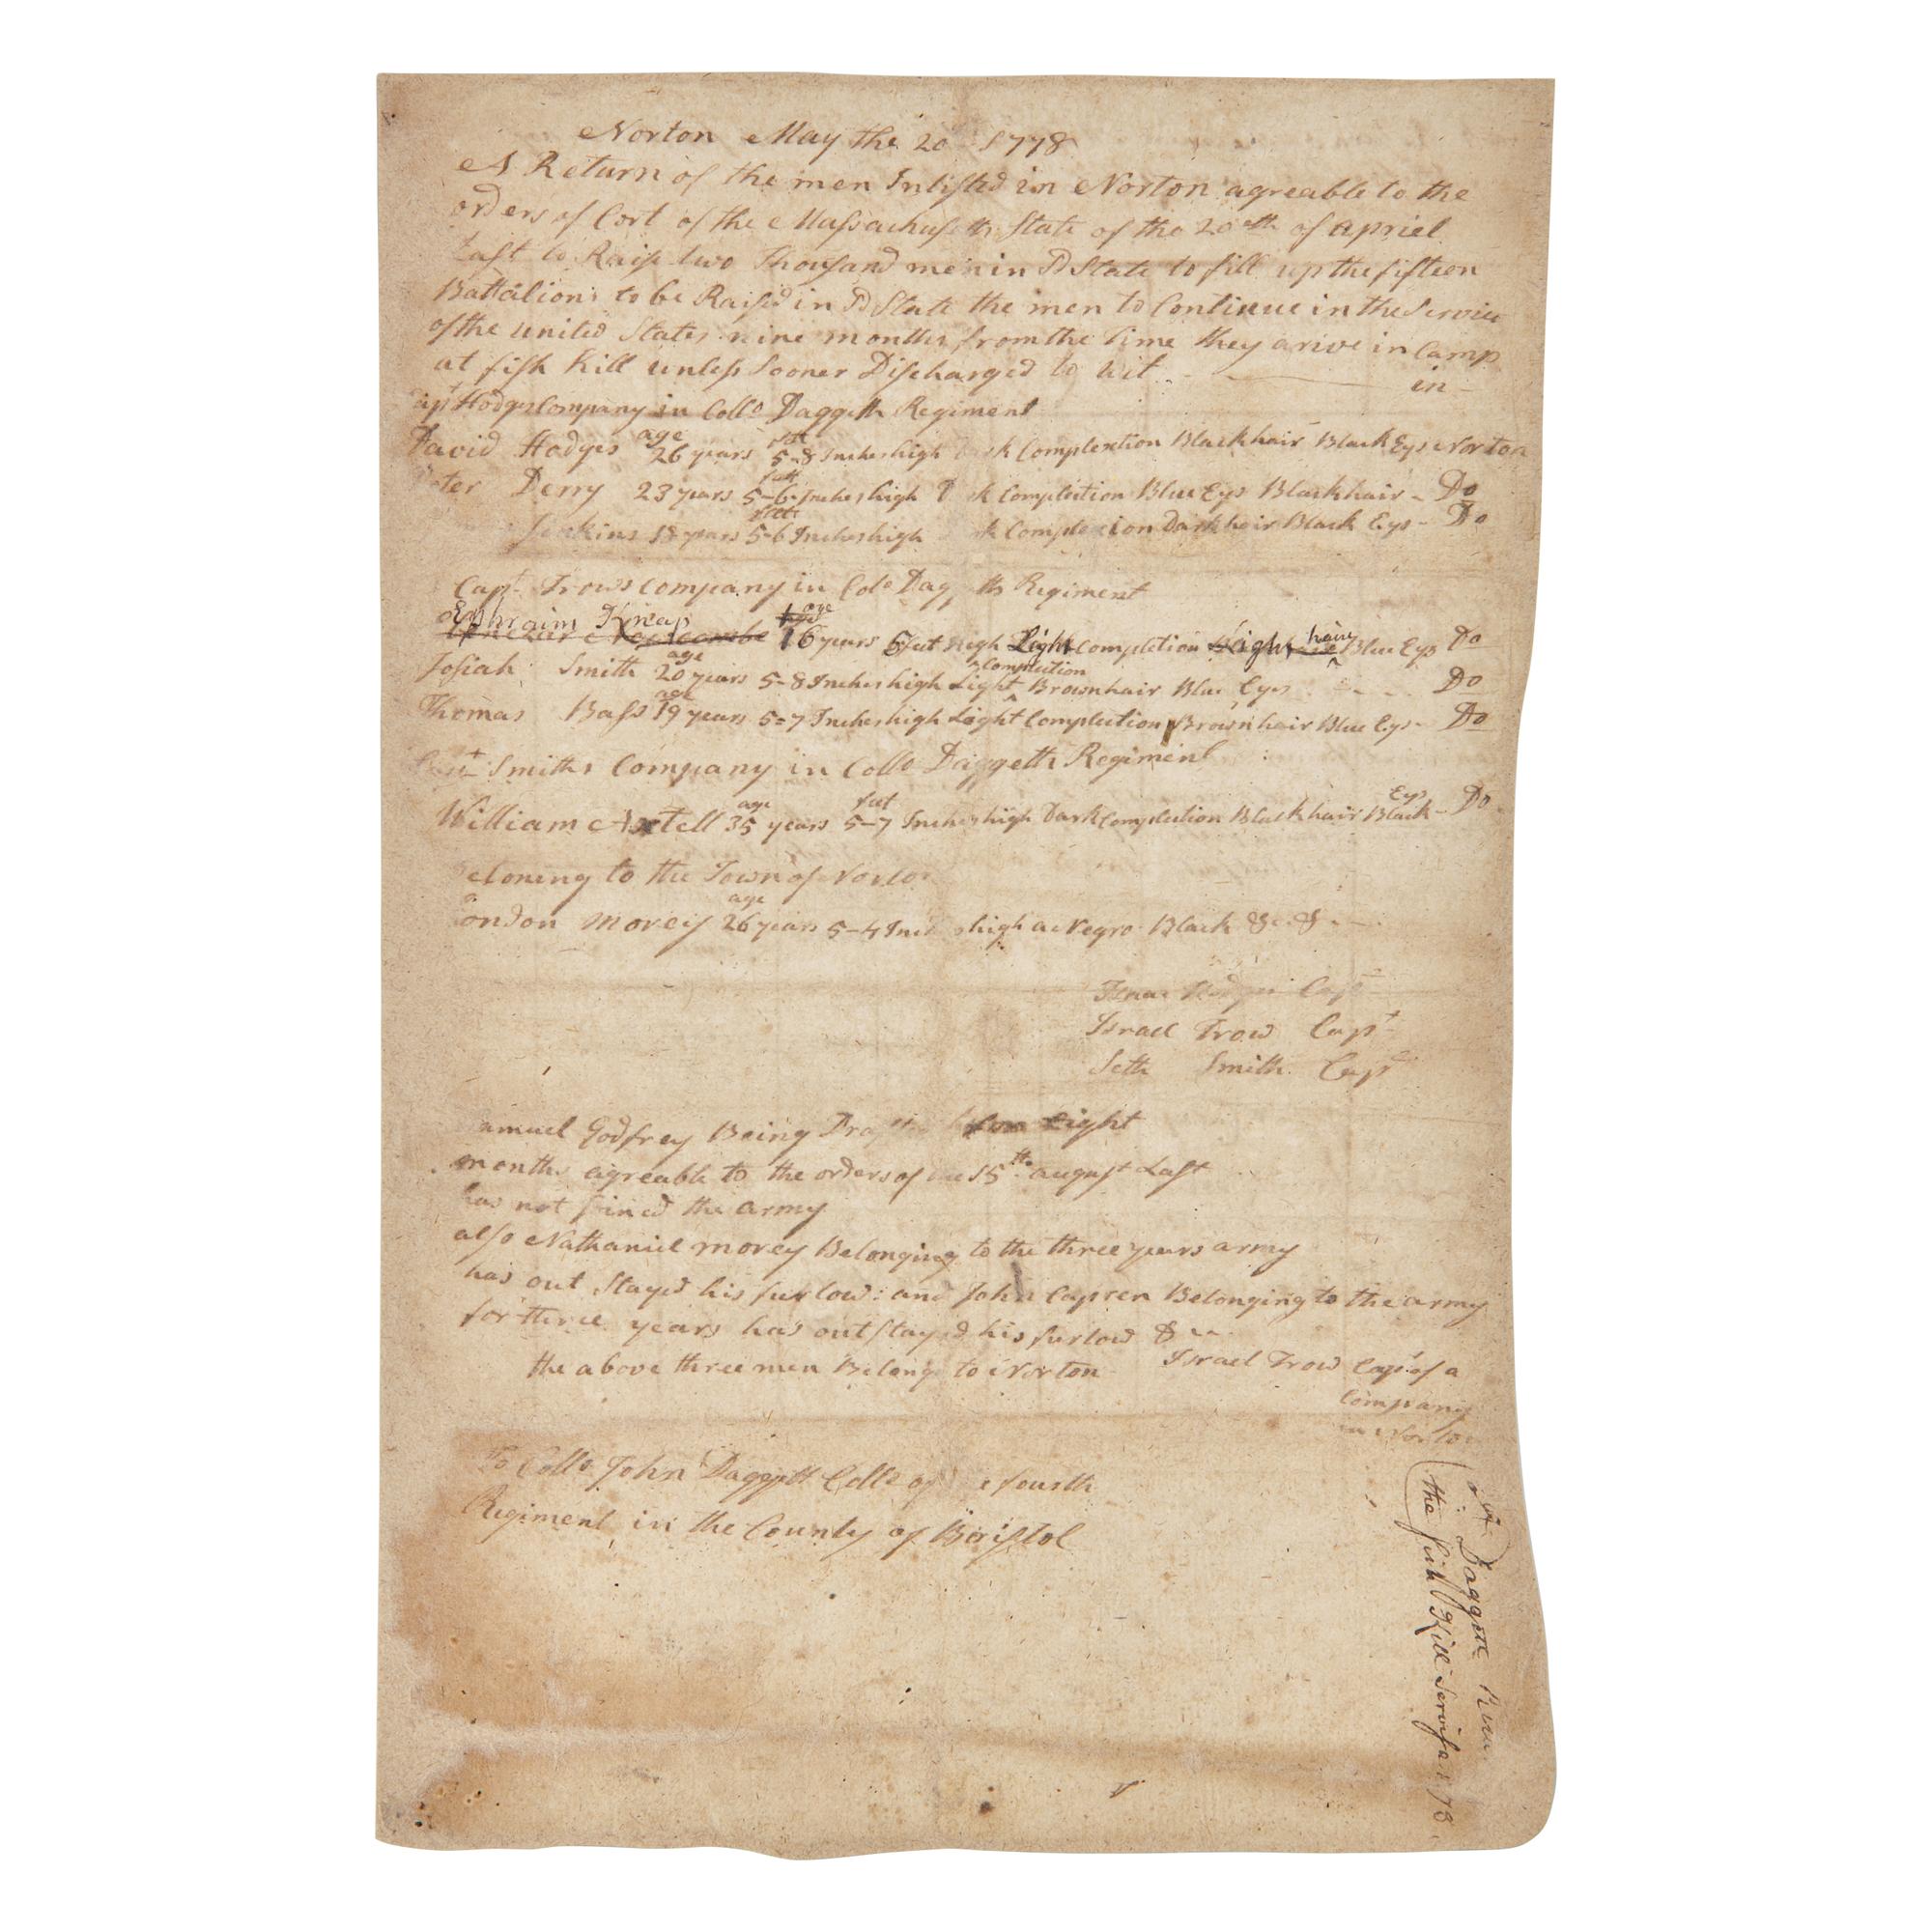 Norton May the 20 1778
A Return of the men Inlisted in Norton agreable to the
orders of Cort of the Massachusetts State of the 20th of apriel
Last to Raise two Thousand men in sd State to fill up the fifteen
Battalions to be Raised in sd State the men to Continue in the Service
of the united States nine months from the time they arive in Camp
at fish Kill unless Sooner Discharged to wit
in
Capt Hodges Company in Collo Daggeth Regiment
David Hodges age 26 years 5 feet 8 Inches high Complextion Black hair Black Eys Norton
Derry 23 years 5 feet 6 Inches high Complection Blue Eys Black hair Do
Jenkins 18 years 5 feet 6 Inches high Complexion Dark hair Black Eys Do
Capt Trows Company in Colo Regiment
Ephraim Knap age 16 years 5 feet high Light Complection Light hair Blue Eys Do
Josiah Smith age 20 years 5-8 Inches high Light Complection Brown hair Blue Eyes Do
Thomas Bass age 19 years 5-7 Inches high Light Complection Brown hair Blue Eys Do
Capt Smiths Company in Collo Daggeth Regiment
William Axtell age 35 years 5 feet 7 Inches high Dark Complection Black hair Black Eys Do
to the Town of Norton
London morey age 26 years 5-4 high a Negro Black &c &
Isaac Hodges Capt
Israel Trow Capt
Seth Smith Capt
Samuel Godfrey Being for Eight
months agreable to the orders of the 15th august Last
has not Joined the army
also Nathaniel morey Belonging to the three years army
has out Stayed his furlow: and John Capren Belonging to the army
for three years has out stayed his furlow &c
the above three men Belong to Norton Israel Trow Capt of a
Company
in Norton
To Collo John Daggett Collo of fourth
Regiment in the County of Bristol
Daggett
the fish Kill Servise 1778